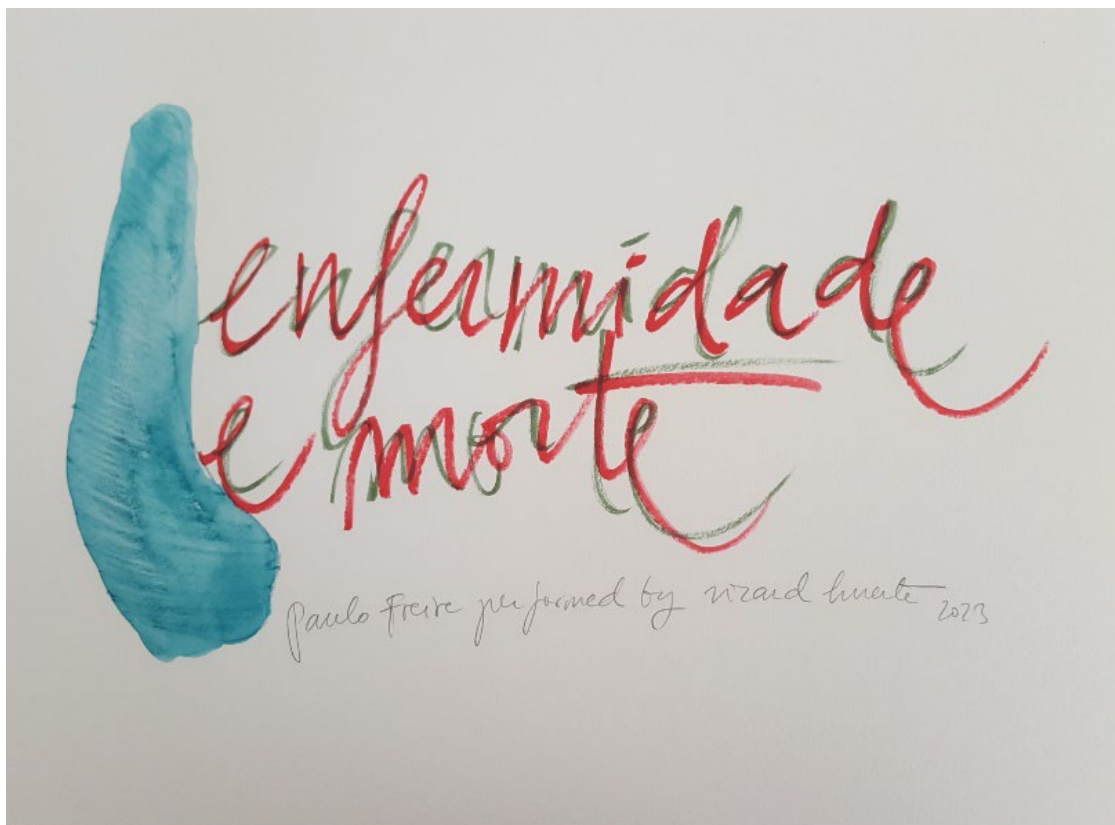 enfermidade
e morte
paulo Freire performed by ricard huerta 2023